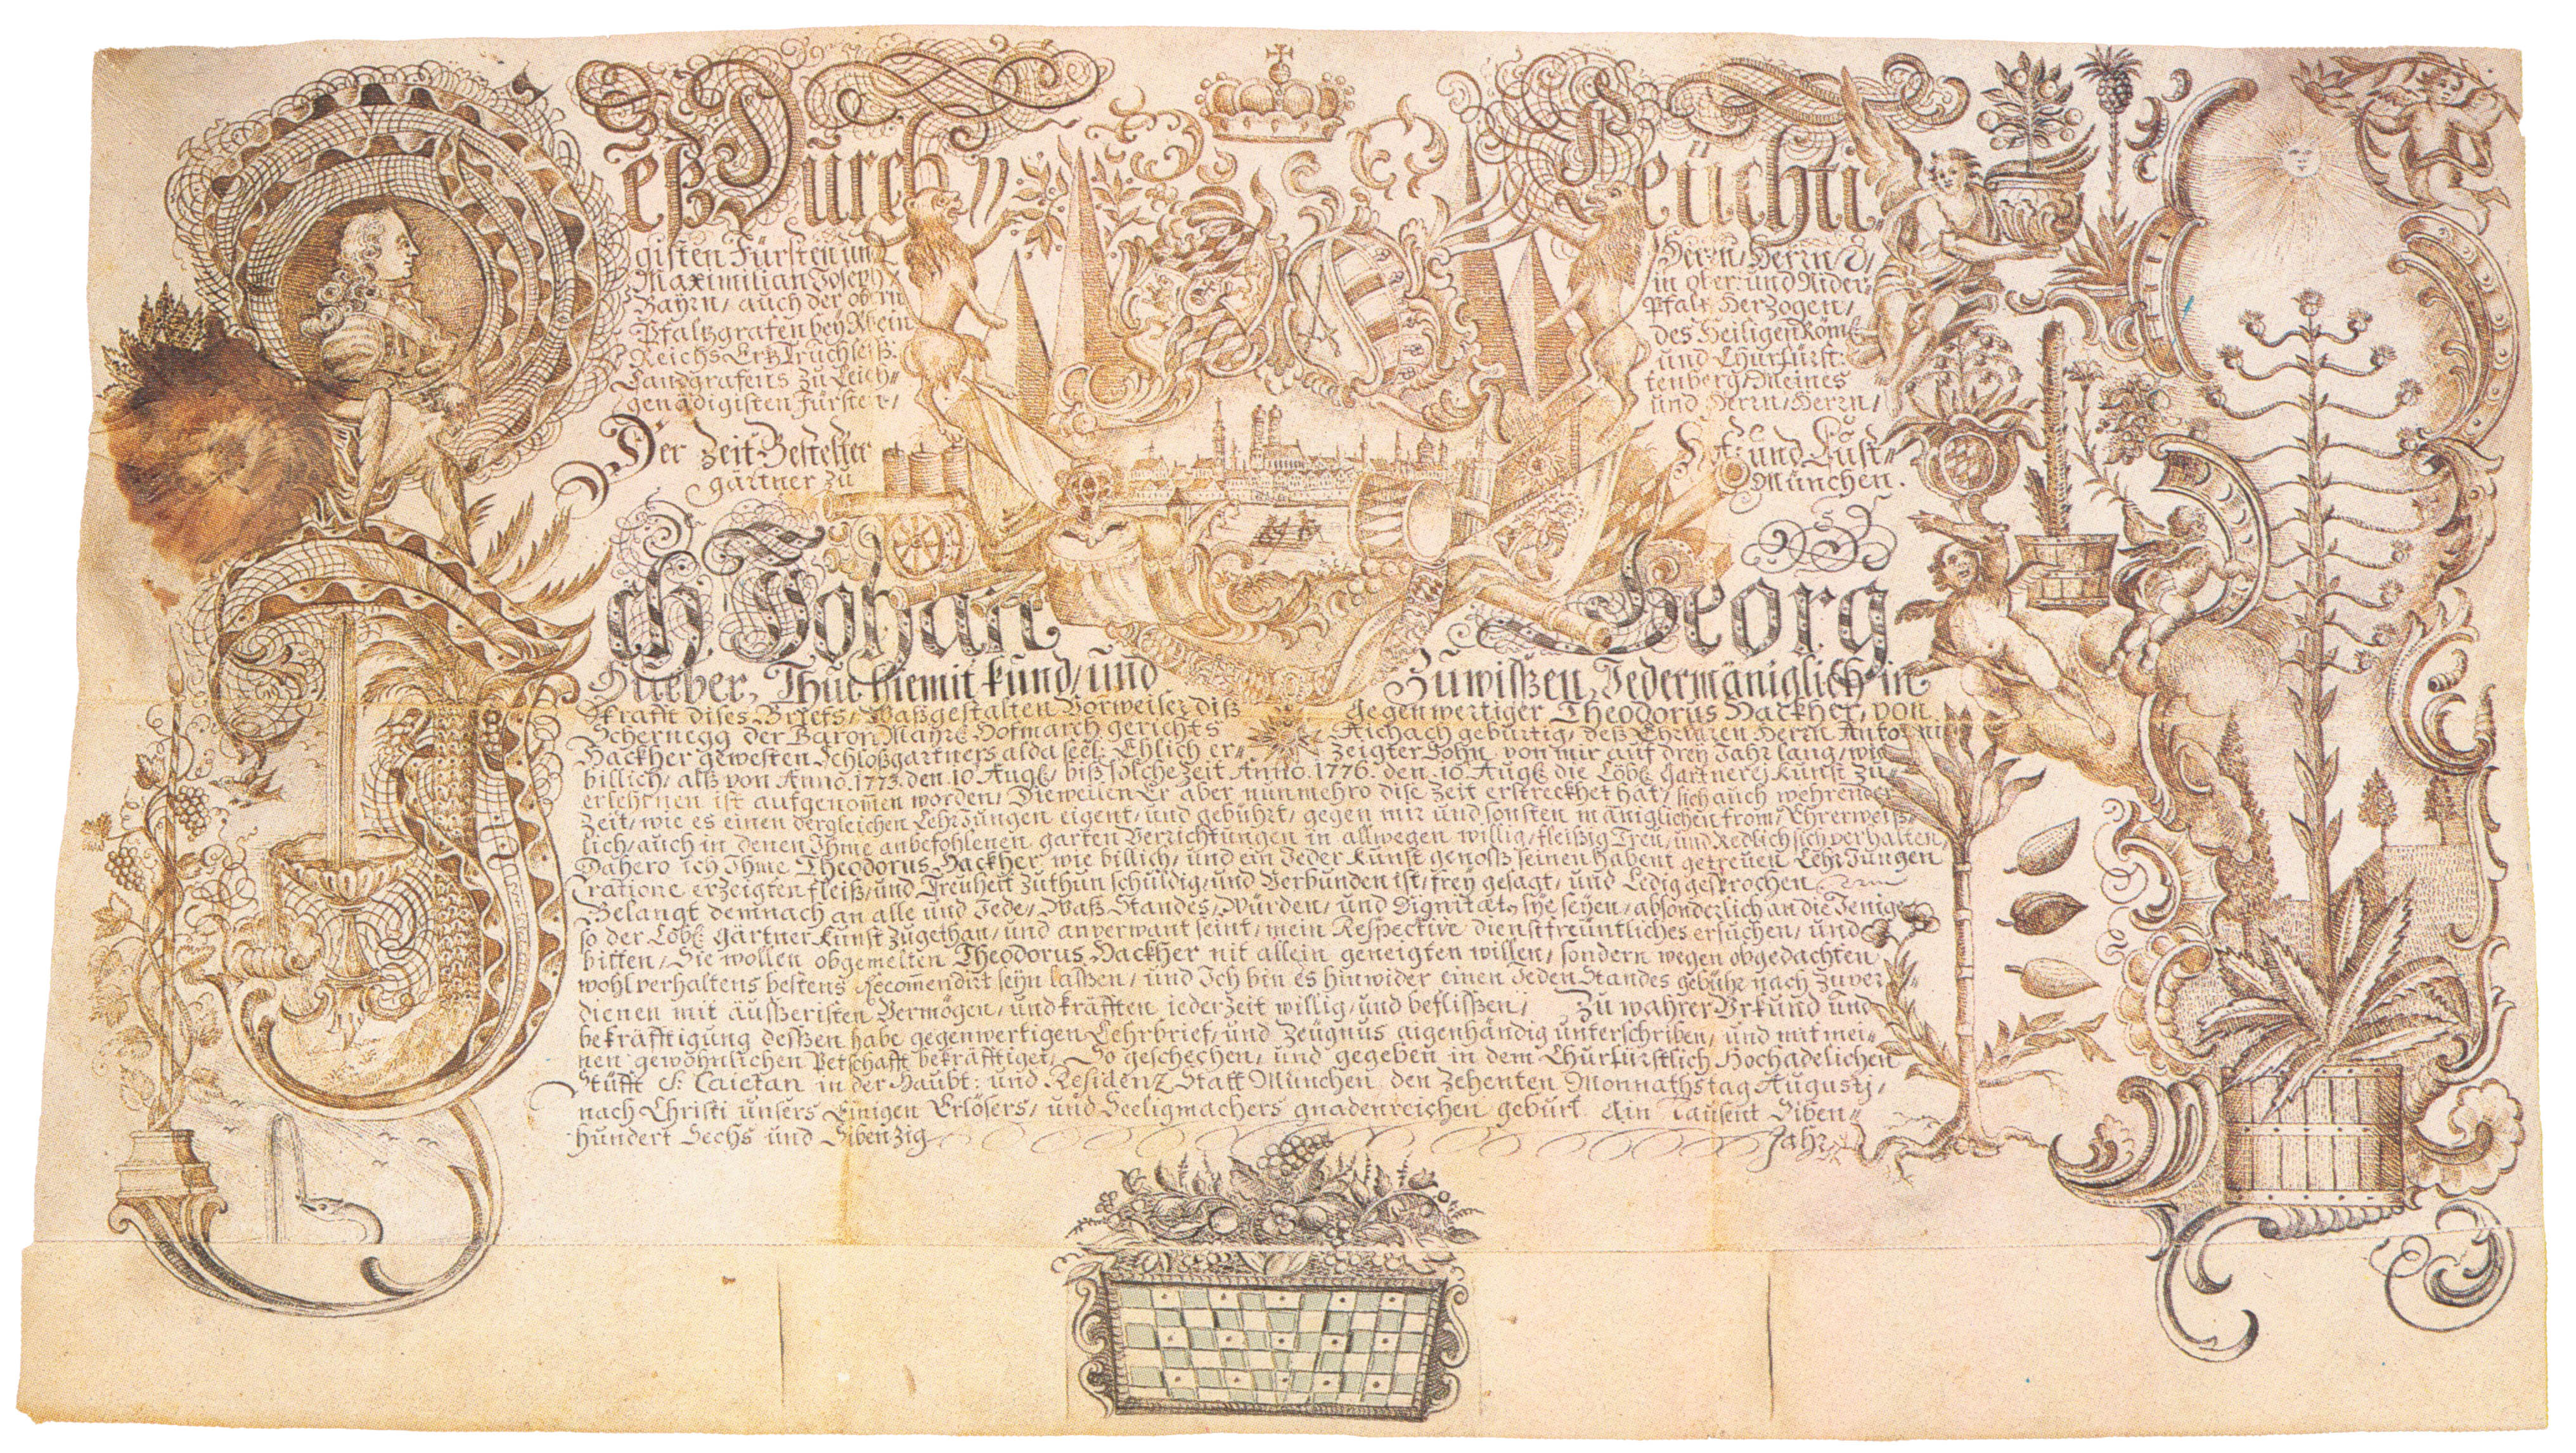 Deß Durch Leüchti
gisten Fürsten und Herrn/Herrn/
Maximilian Joseph in ober: und Nider:
Bayrn/ auch der obern Pfaltz Herzogen/
Pfaltzgrafen bey Rhein des Heiligen Röm:
Reichs Ertz Truchseß: und Churfürst:
Landgrafens zu Leich= tenberg/Meines
genädigisten Fürsten/ und Herrn/Herrn/
Der Zeit Bestelter Hof: und Lust=
gärtner zu München.
Ich Johan Georg
Thue hiemit kund/und Zuwissen, Jedermäniglich in
krafft dises Briefs/ Waßgestalten Vorweiser diß gegenwertiger Theodorus Hackher, von
Schernegg der Baron Hofmarch gerichts Aichach gebürtig, deß Ehrbaren Herrn Antoni
Hackher gewesten Schloßgartners alda seel: Ehlich er= zeigter Sohn von mir auf drey Jahr lang/wie
billich/ alß von Anno.1773. den 10 Aug: biß solche Zeit Anno.1776. den 10 Aug: die Löbl: Gärtnerey Kunst zu
erlehrnen ist aufgenom̄en worden/ Dieweilen Er aber nunmehro dise Zeit erstreckhet hat/ sich auch wehrender
Zeit/wie es einen dergleichen Lehr Jungen eigent/und gebührt/gegen mir und sonsten mäniglichen from/Ehrerweiß=
lich/auch in denen Ihme anbefohlenen garten Verrichtungen in allwegen willig/fleißig Treu/und Redlich sich verhalten/
Dahero ich Ihme Theodorus Hackher, wie billich/und ein Jeder Kunst genoß seinen habent getreuen Lehr Jungen
ratione erzeigten fleiß/und Treuheit zuthun schuldig/und Verbunden ist/frey gesagt/ und Ledig gesprochen
Belangt demnach an alle und Jede/Waß Standes/Würden/ und Dignitæt sye seyen/absonderlich an die Jenige
so der Löbl: Gärtner Kunst zugethan/und anverwant seint/mein Respective dienstfreuntliches ersuchen/ und
bitten/Sie wollen obgemelten Theodorus Hackher nit allein geneigten willen/sondern wegen obgedachten
wohl verhaltens bestens Recom̄endirt seyn lassen/ und Ich bin es hinwider einen Jeden Standes gebühr nach zuver=
dienen mit äusseristen Vermögen/und kräfften jederzeit willig/und beflissen/ Zu wahrer Vrkund und
bekräfftigung dessen habe gegenwertigen Lehrbrief/und Zeügnus aigenhändig unterschriben/und mit mei=
nen gewöhnlichen Petschafft bekräfftiget/ So geschechen/ und gegeben in dem Churfürstlich Hochadelichen
Stüfft S: Caietan in der Haubt: und Residenz Statt München den Zehenten Monnathstag Augusti/
nach Christi unsers Einigen Erlösers/und Seeligmachers gnadenreichen geburt Ain Tausent Siben=
hundert Sechs und Sibenzig Jahr